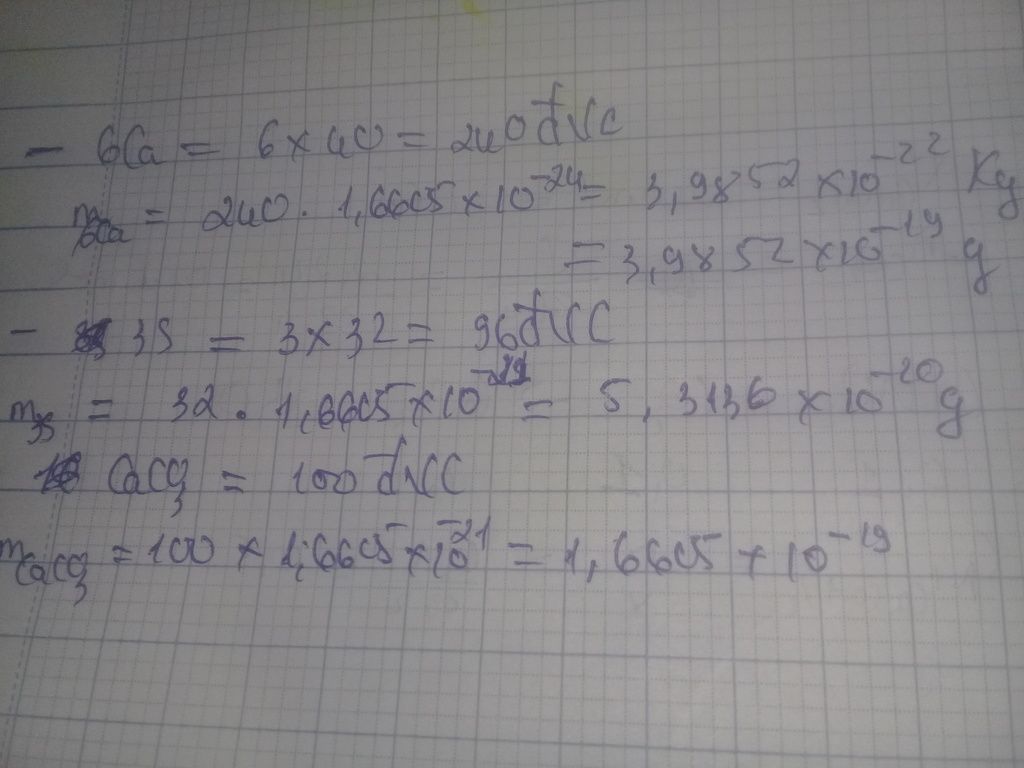 - 6Ca = 6 x 40 = 240 đVC
m6Ca = 240 . 1,6605 x 10^-24 = 3,9852 x 10^-22 Kg
= 3,9852 x 10^-19 g
- 3S = 3 x 32 = 96 đVC
m3S = 32 . 1,6605 x 10^-21 = 5,3136 x 10^-20 g
CaCO3 = 100 đVC
mCaCO3 = 100 x 1,6605 x 10^-21 = 1,6605 x 10^-19